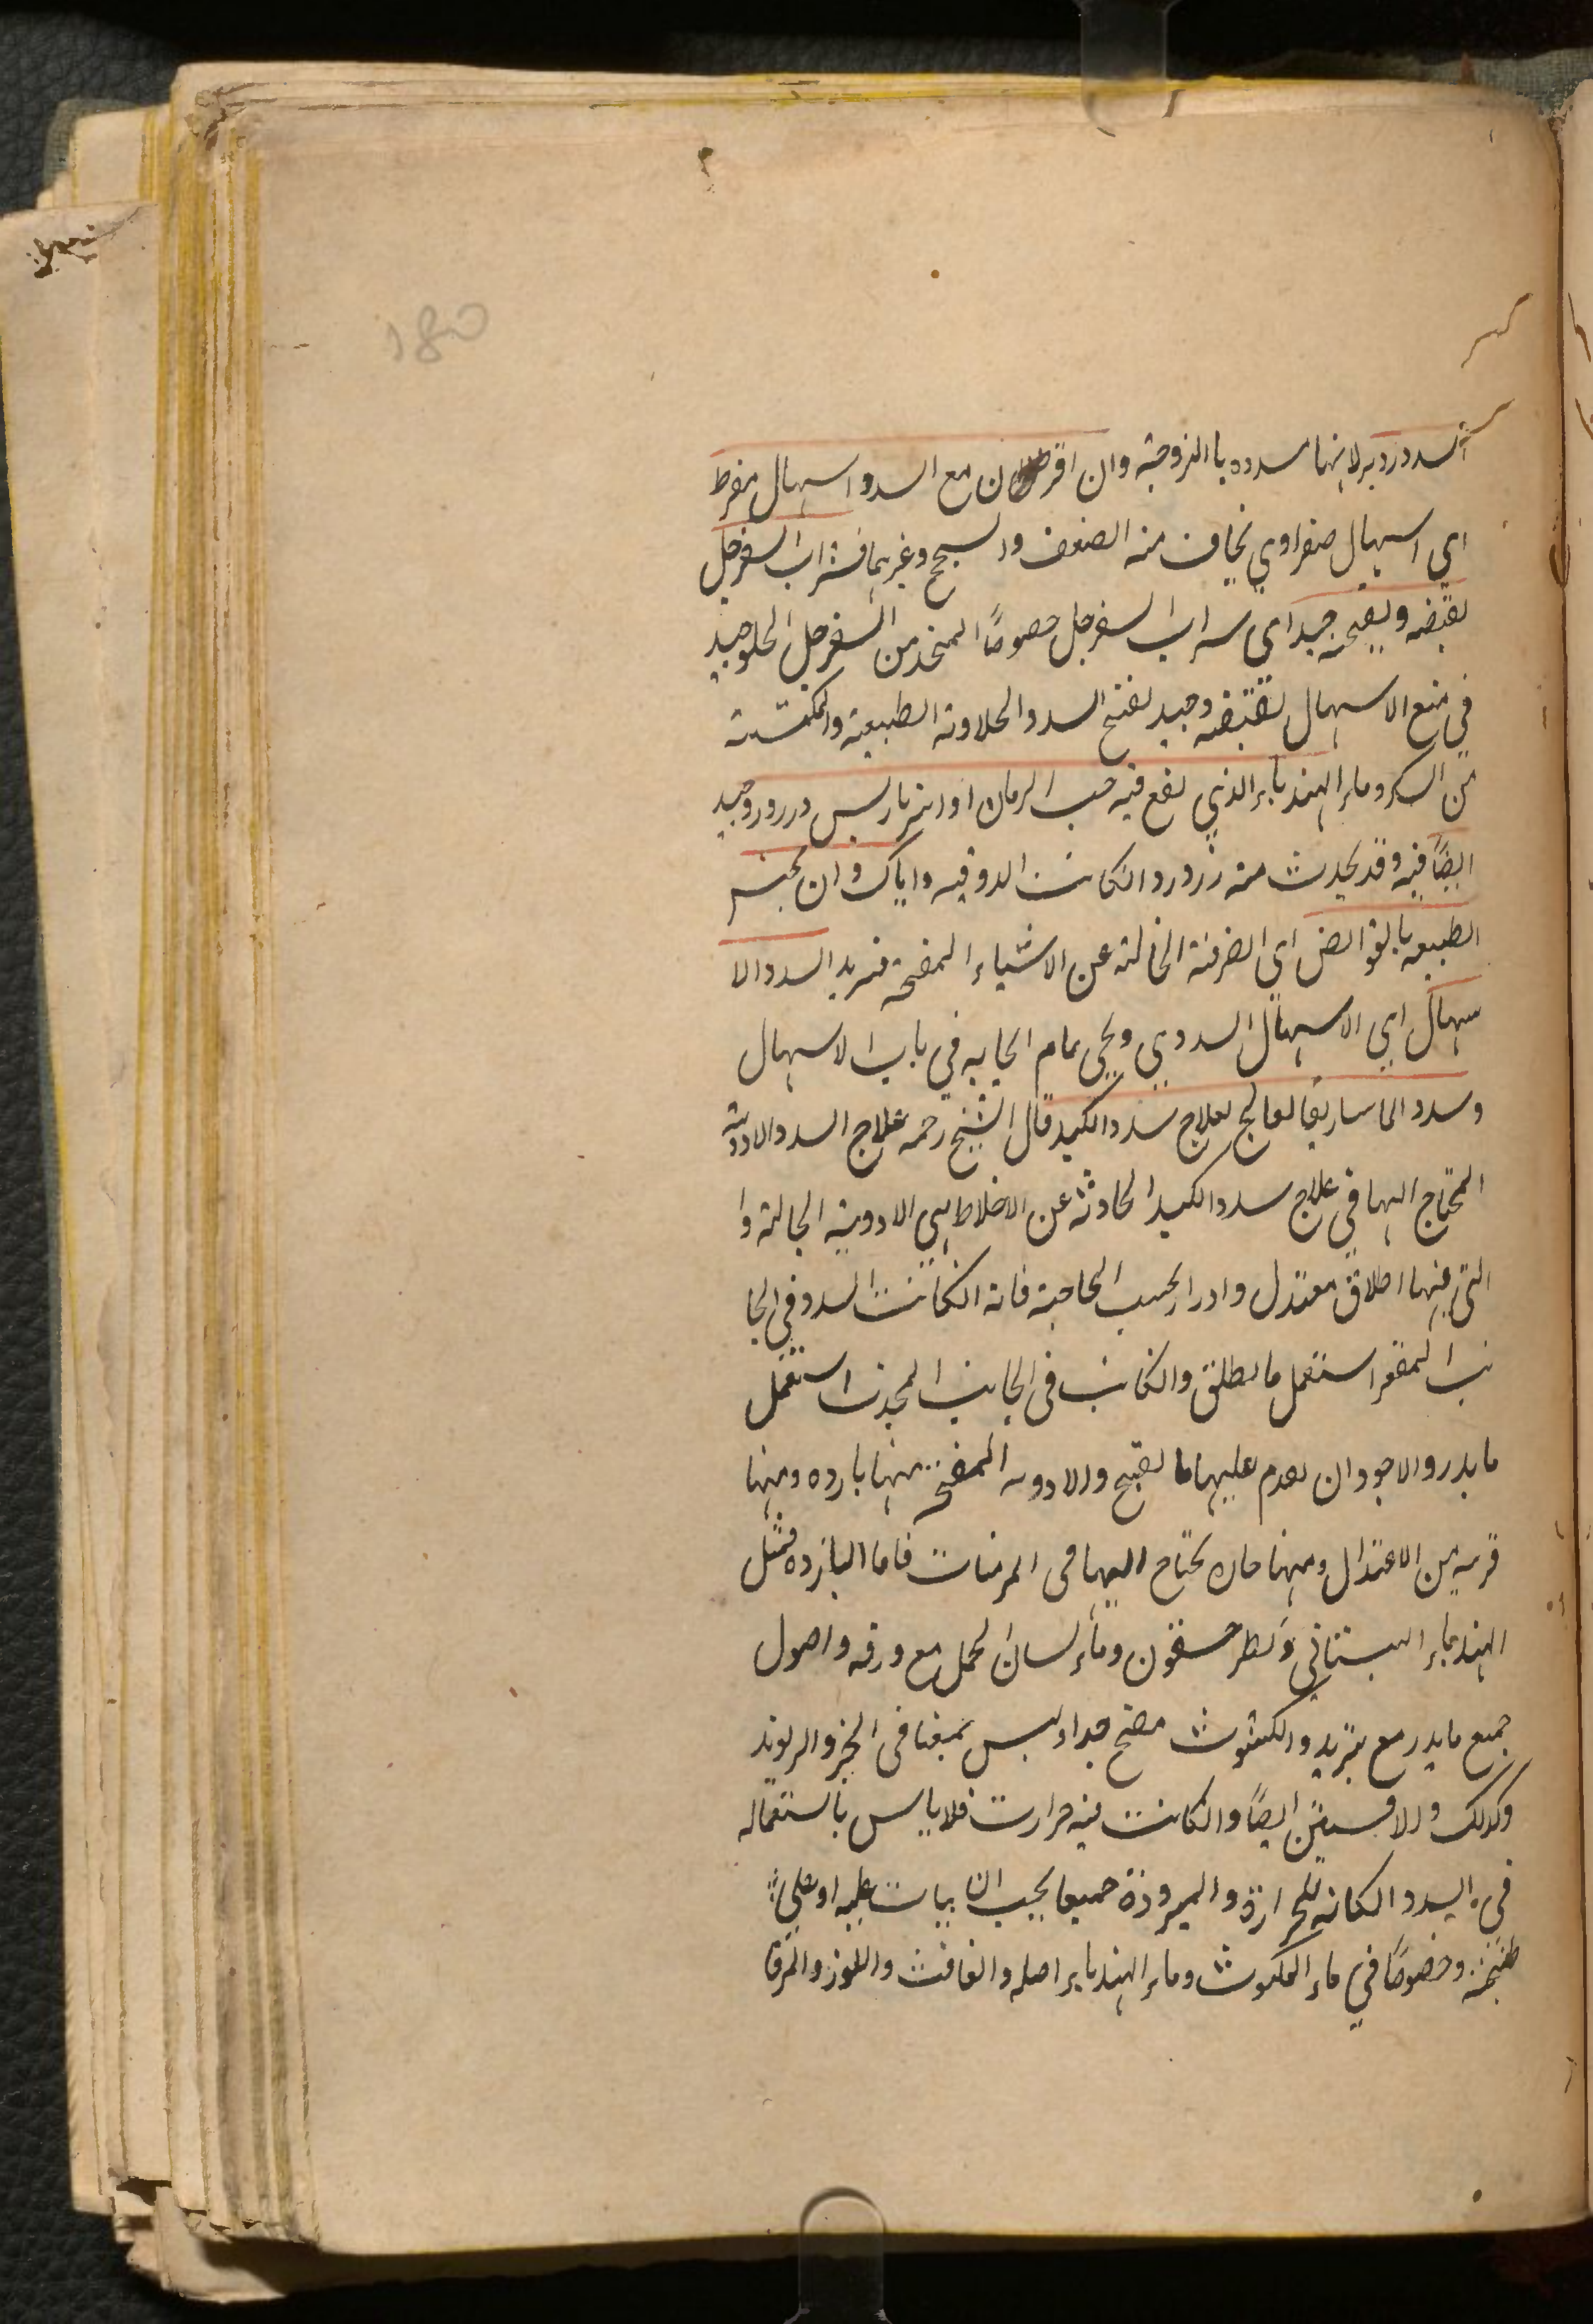 السدد ردير لانها مسدده با اللزوجة وان اقرط ن مع السدد اسهال مفرط
اي اسهال صفراوي يخاف منه الضعف والسحج وغيرهما فشراب السفرجل
بقبضه وبفتحه جيد اي شراب السفرجل خصوصًا المتخذ من السفرجل الحلو جيد
في منع الاسهال بقبضه وجيد لفتح السدد الحلاوته الطبيعية والمكتسبة
من السكر وماء الهندباء الذي نقع فيه حب الرمان او انبرباريس وزرورد جيد
ايضًا فيه وقد يحدث منه زرورد انكانت الدوقيه واياك وان تحبس
الطبيعه بالقوابض اي الصرفة الخالية عن الاشياء المفتحه فتزيد السدد الا
سهال اي الاسهال السددي ويجئ تمام الحابه في باب الاسهال
وسدد الماساريقا تعالج بعلاج سدد الكبد قال الشيخ رحمه علاج السدد الادوية
المحتاج اليها في علاج سدد الكبد الحادثة عن الاخلاط هي الادوية الجالية وا
التي فيها اطلاق معتدل وادرار بحسب الحاجة فانه انكانت السدد في الجا
نب المقعر استعمل ما يطلق وانكانت في الجانب المحدب استعمل
ما يدر والاجود ان يقدم عليها ما يفتح والادويه المفتحه منها بارده ومنها
قريبه من الاعتدال ومنها حاره يحتاج اليها في المزمنات فاما البارده فمثل
الهندباء البستاني والطرحشقون وماء لسان الحمل مع ورقه واصول
جميع ما يدر مع تبريد والكشوث مفتح جيد وليس بمبغا في الحر والريوند
وكذلك والافسنتين ايضًا وانكانت فيه حرارت فلا باس باستعماله
في السدد الكانه للحرارة والبرودة جميعا يجب ان بيات عليه او على
طبيخه وخصوصًا في ماء الكشوث وماء الهندباء اصله والغافث واللوز والمرقا